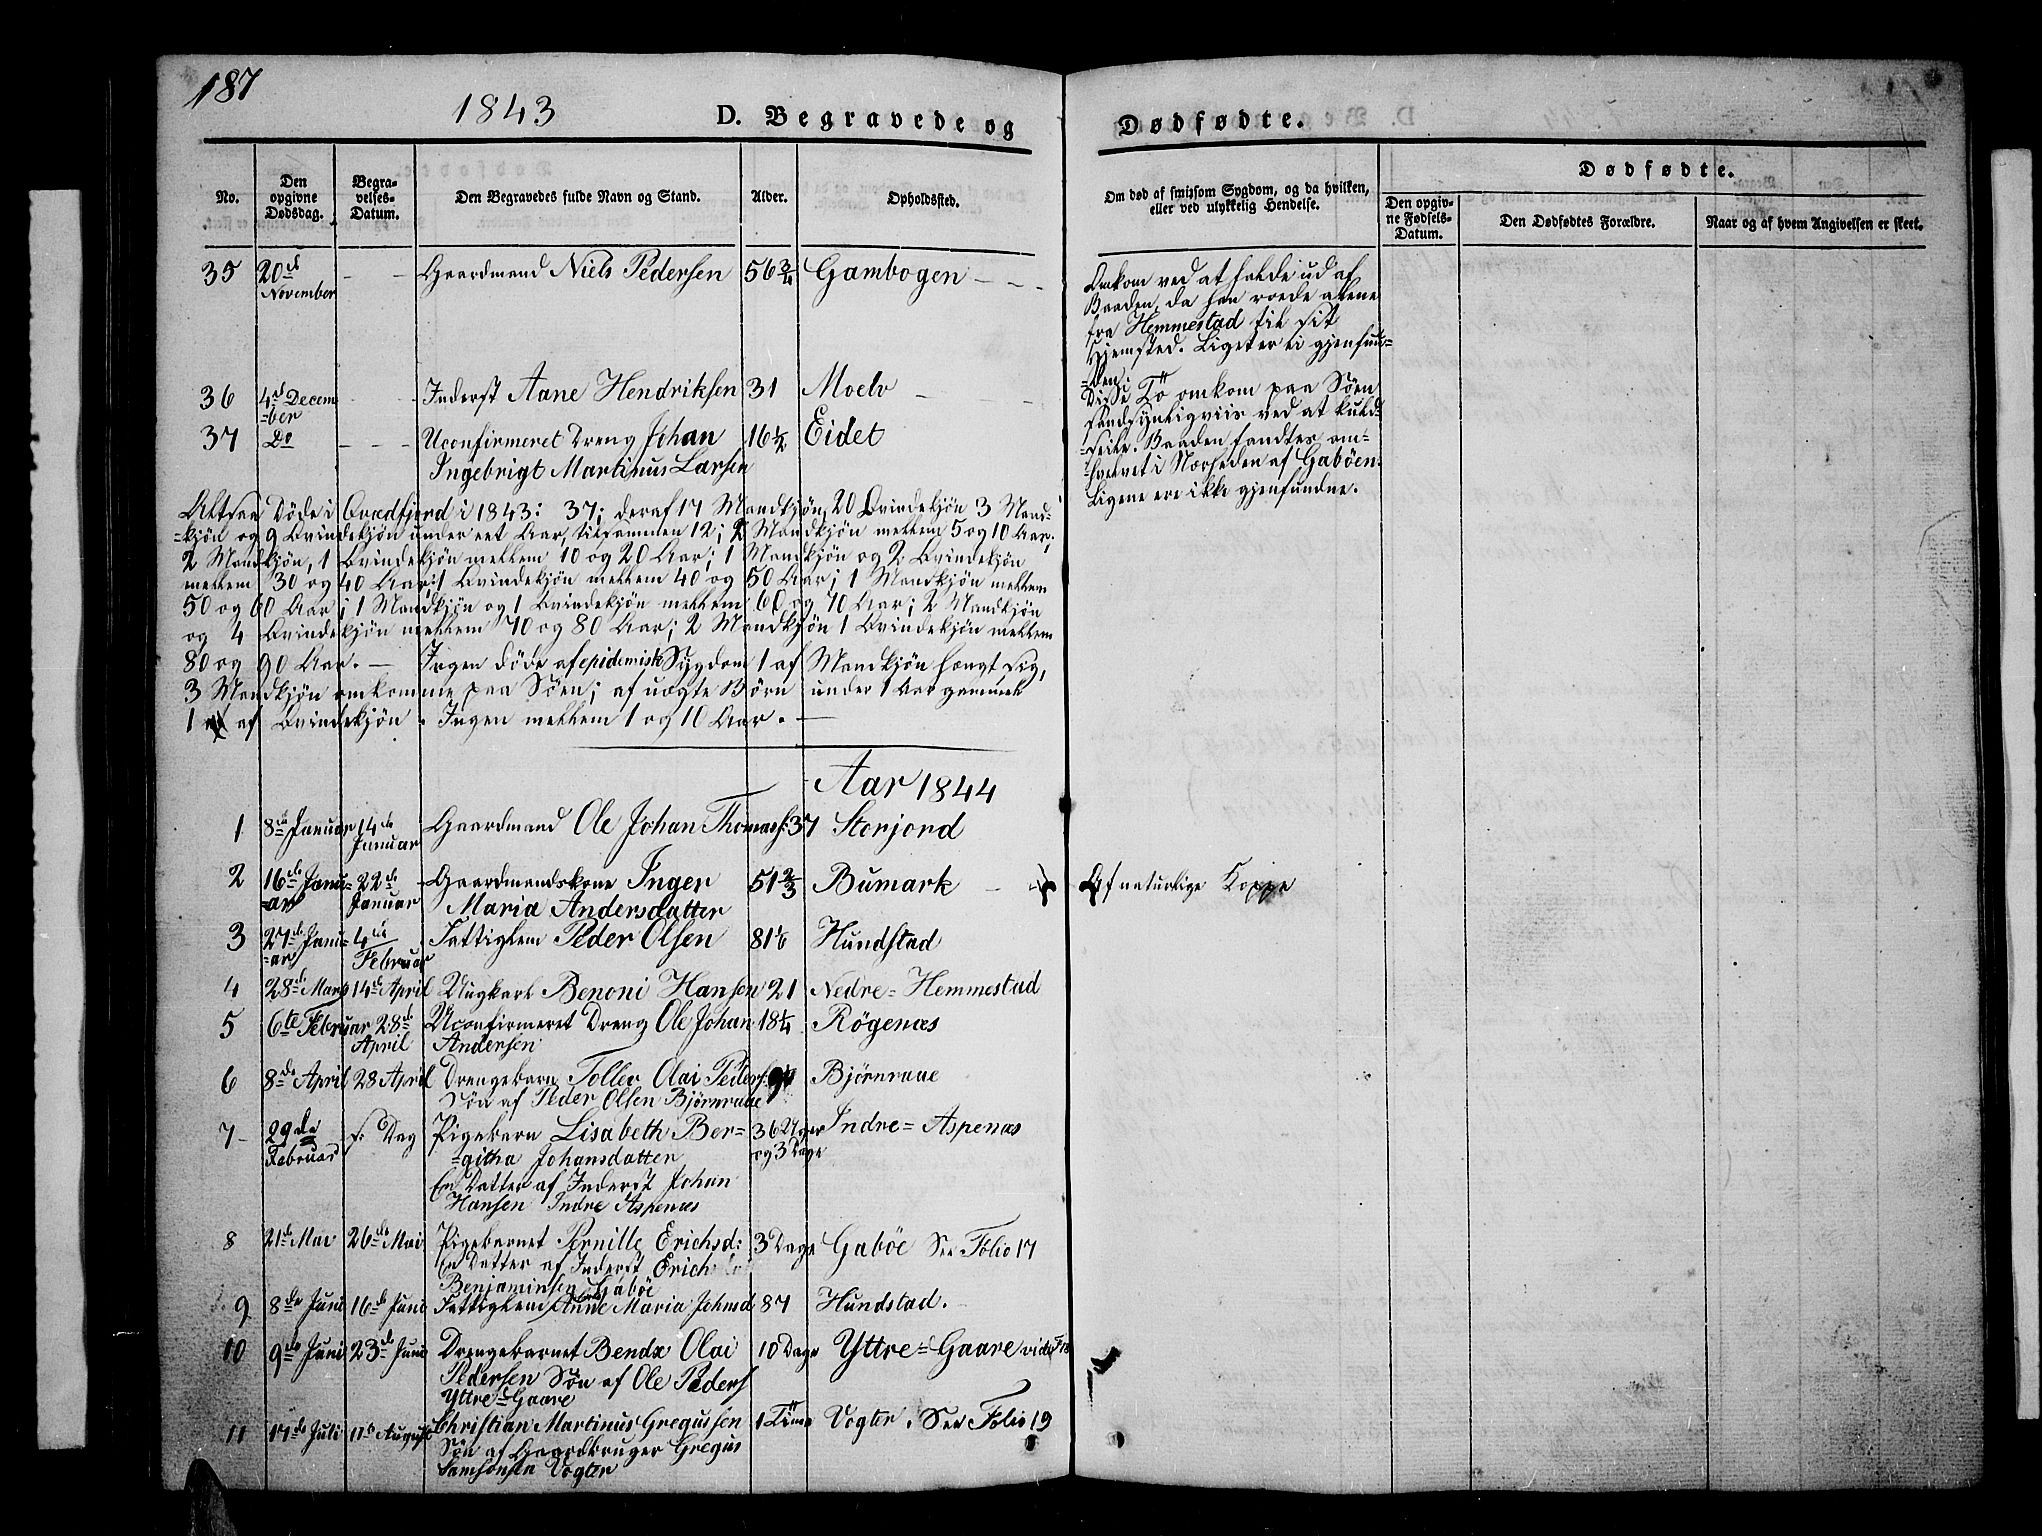 187
1843
D. Begravede og
Dødfødte.
No.
Den opgivne Dødsdag.
Begravelses-Datum.
Den Begravedes fulde Navn og Stand.
Alder.
Opholdssted.
Om død af smitsom Sygdom, og da hvilken,
eller ved ulykkelig Hendelse.
Dødfødte.
Den opgivne Fødsels-Datum.
Den Dødfødtes Forældre.
Naar og af hvem Angivelsen er skeet.
35 20d November - - Gaardmand Niels Pedersen 56 3/4 Gambogen - - -
Omkom ved at falde ud af
Baaden, da han roede alene
fra Hemmestad til sit
Hjemsted. Liget er ei gjenfun=
=den.
36 4d Decem=ber - - Inderst Aane Hendriksen 31 Moelv - -
37 Do - - - Uconfirmeret Dreng Johan 16 1/2 Eidet
Ingebrigt Martinus Larsen
Disse To omkom paa Søen
sandsynligviis ved at kuld=
=seile. Baaden fandtes om=
=hvelvet i Nærheden af Gabøen.
Ligene ere ikke gjenfundne.
Altsaa Døde i Qvædfjord i 1843: 37; deraf 17 Mandkjøn, 20 Qvindekjøn 3 Mand=
=kjøn og 9 Qvindekjøn under eet Aar, tilsammen 12; 2 Mandkjøn mellem 5 og 10 Aar;
2 Mandkjøn, 1 Qvindekjøn mellem 10 og 20 Aar; 1 Mandkjøn og 2 Qvindekjøn
mellem 30 og 40 Aar; 1 Qvindekjøn mellem 40 og 50 Aar; 1 Mandkjøn mellem
50 og 60 Aar; 1 Mandkjøn og 1 Qvindekjøn mellem 60 og 70 Aar; 2 Mandkjøn
og 4 Qvindekjøn mellem 70 og 80 Aar; 2 Mandkjøn 1 Qvindekjøn mellem
80 og 90 Aar. - Ingen døde af epidemisk Sygdom 1 af Mandkjøn hængt sig,
3 Mandkjøn omkomne paa Søen; af uægte Børn under 1 Aar gammel
1 af Qvindekjøn. Ingen mellem 1 og 10 Aar. -
Aar 1844
1 8de Januar 14de Januar Gaardmand Ole Johan Thomass: 37 Storjord
2 16de Janu=ar 22de Januar Gaardmandskone Inger 51 2/3 Bumark -
Maria Andersdatter
Af naturlige Kopper
3 27de Janu=ar 4de Februar Fattiglem Peder Olsen 81 1/6 Hundstad
4 28de Marts 14de April Ungkarl Benoni Hansen 21 Nedre=Hemmestad
5 6te Februar 28de April Uconfirmeret Dreng Ole Johan 18 1/4 Røgenæs
Andersen
6 8de April 28 April Drengebarn Toller Olai Peders: Bjørnraae
Søn af Peder Olsen Bjørnraae
7 - 29de Februar s: Dag Pigebarn Lisabeth Ber= 36 Uger og 3 Dage Indre=Aspenæs
=githa Johansdatter
En Datter af Inderst Johan
Hansen Indre Aspenæs
8 21de Mai 26de Mai Pigebarnet Pernille Erichsd: 3 Dage Gabøe See Folio 17
En Datter af Inderst Erich
Benjaminsen Gabøe
9 8de Juni 16de Juni Fattiglem Anne Maria Johnsd 87 Hundstad.
10 9de Juni 23de Juni Drengebarnet Bendx Olai 10 Dage Yttre=Gaare vide
Pedersen Søn af Ole Peders
Yttre=Gaare
11 17de Juli 11te August Christian Martinus Gregussen 1 Time Vogter. See Folio 19
Søn af Gaardbruger Gregus
Samsonsen Vogter